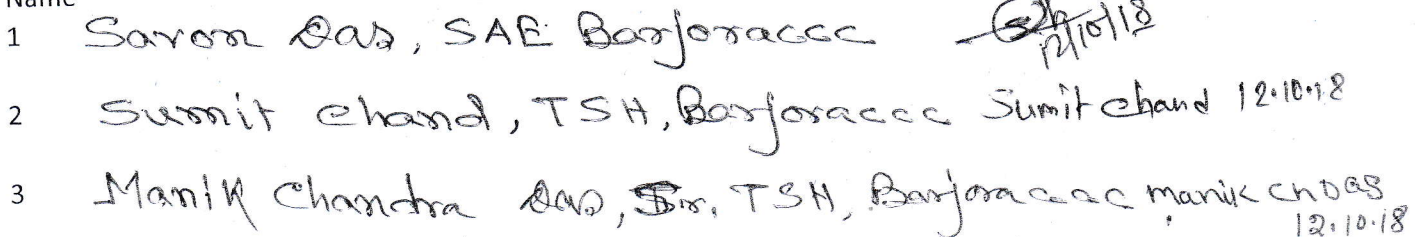 Name
1 Saron Das, SAE Barjoraccc 12/10/18
2 Sumit Chand, TSH, Barjoraccc Sumit Chand 12.10.18
3 Manik Chandra Das, Sr. TSH, Barjoraccc Manik Ch Das
12.10.18